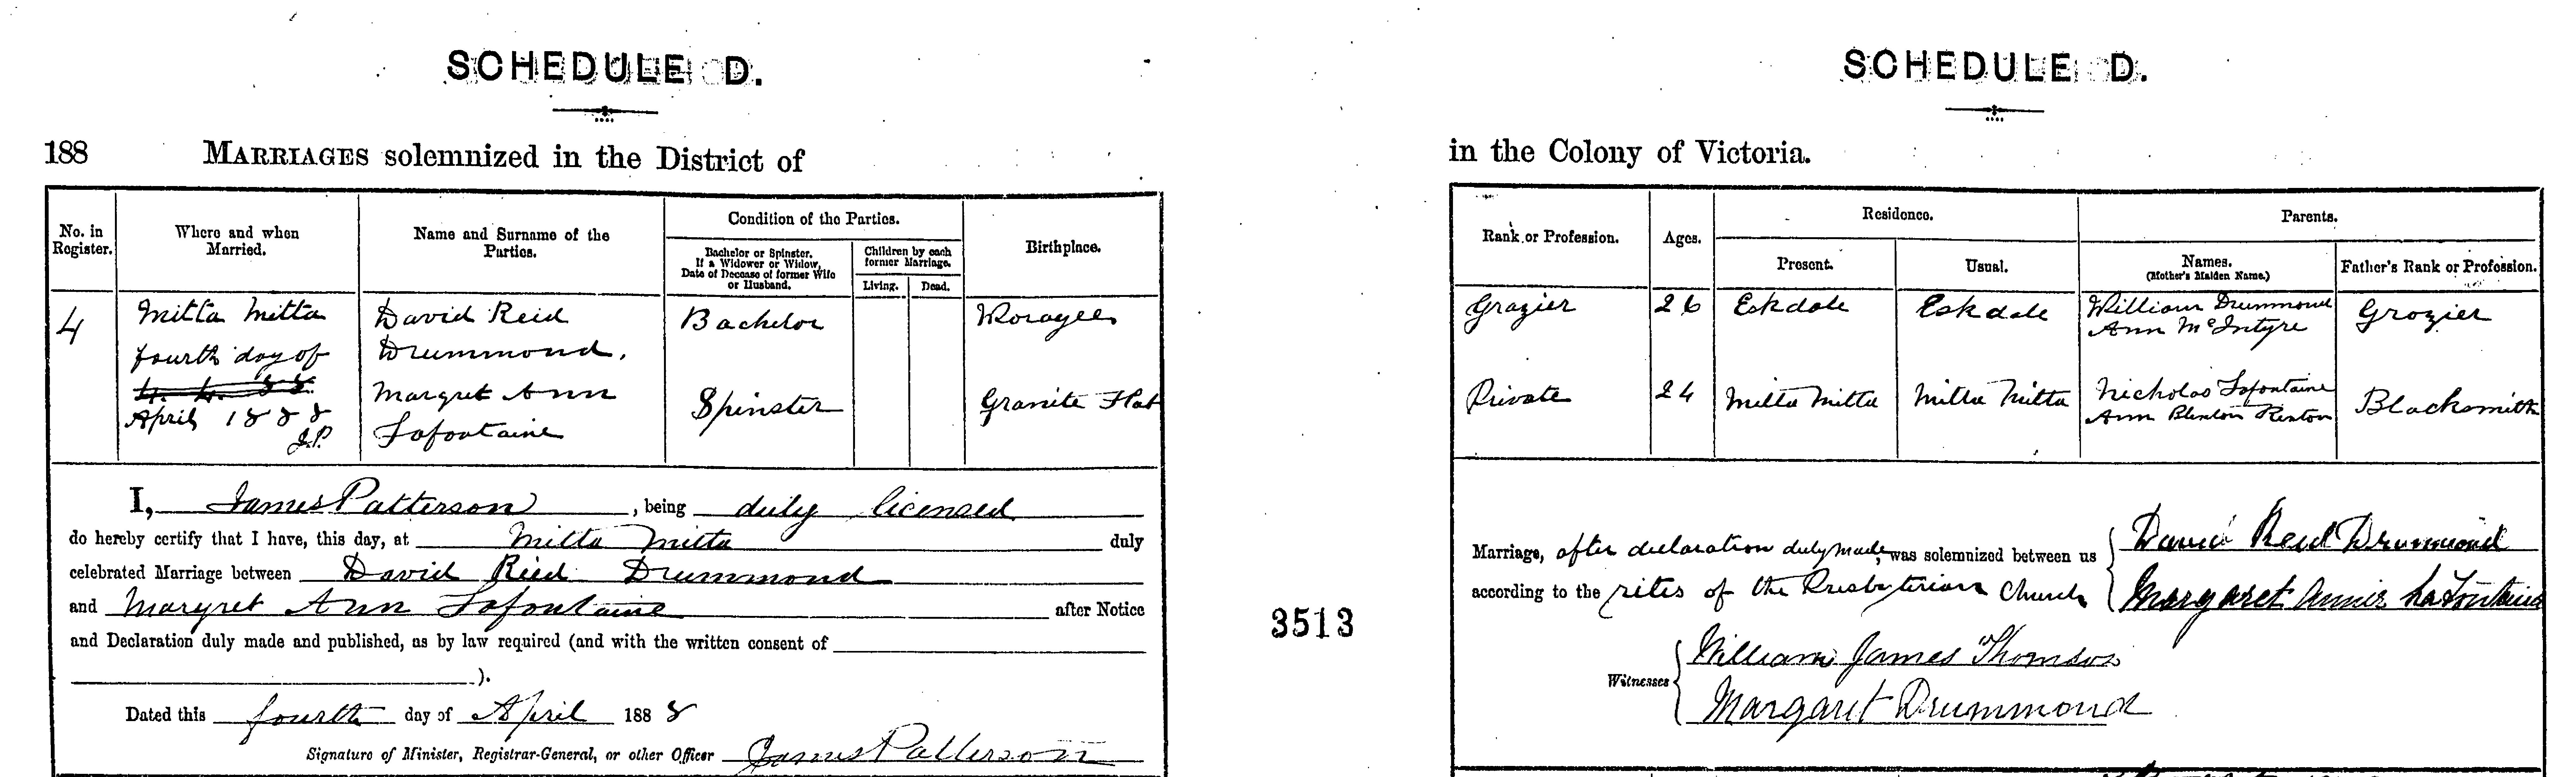 SCHEDULE D.
188 MARRIAGES solemnized in the District of
No. in Register.
Where and when Married.
Name and Surname of the Parties.
Condition of the Parties.
Bachelor or Spinster. If a Widower or Widow, Date of Decease of former Wife or Husband.
Children by each former Marriage.
Living.
Dead.
Birthplace.
4
Mitta Mitta
fourth day of
April 1888
J.P.
David Reid
Drummond.
Bachelor
Margret Ann
Lafontaine
Spinster
Granite Flat
I, James Patterson, being duly licensed
do hereby certify that I have, this day, at Mitta Mitta duly
celebrated Marriage between David Reid Drummond
and Margret Ann Lafontaine after Notice
and Declaration duly made and published, as by law required (and with the written consent of
).
Dated this fourth day of April 1888
Signature of Minister, Registrar-General, or other Officer James Patterson
3513
SCHEDULE D.
in the Colony of Victoria.
Rank or Profession.
Ages.
Residence.
Present.
Usual.
Parents.
Names. (Mother's Maiden Name.)
Father's Rank or Profession.
Grazier
26
Eskdale
Eskdale
William Drummond
Ann McIntyre
Grazier
Private
24
Mitta Mitta
Mitta Mitta
Nicholas Lafontaine
Ann Kenton
Blacksmith
Marriage, after declaration duly made, was solemnized between us
according to the rites of the Presbyterian Church
David Reid Drummond
Margaret Annie LaFontaine
Witnesses
William James Thomson
Margaret Drummond